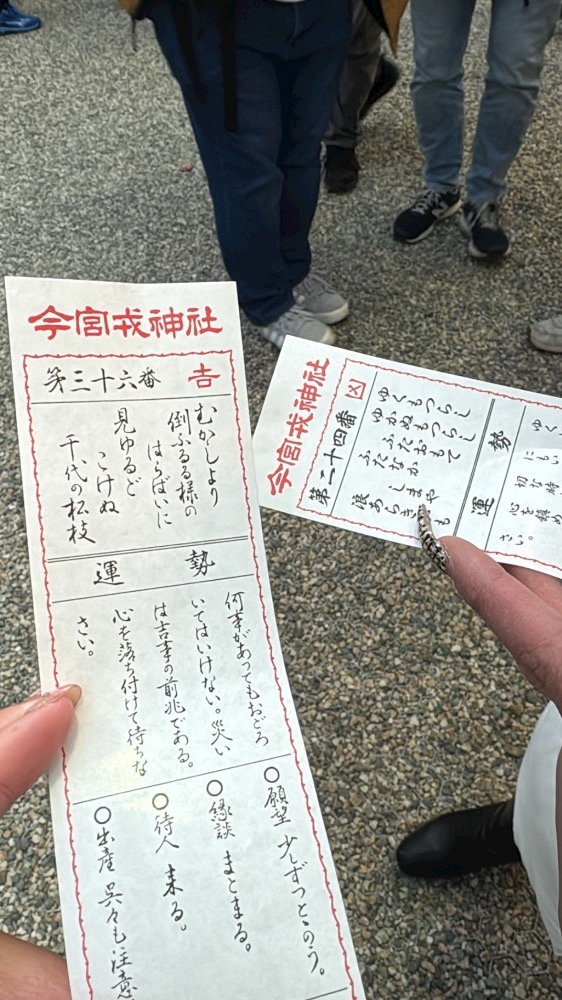 今宮戎神社
第三十六番 吉
むかしより
倒ふるる様の
はらばいに
見ゆるど
こけぬ
千代の松枝
運勢
何事があってもおどろ
いてはいけない。災い
は吉事の前兆である。
心を落ち付けて待ちな
さい。
○願望 少しずつととのう。
○縁談 まとまる。
○待人 来る。
○出産 呉々も注意
今宮戎神社
第二十四番 凶
ゆくもつらし
ゆかぬもつらし
ふたおもて
ふたなか
しまや
浪あらき
運勢
ゆく
にもい
切な時
心を鎮め
さい。